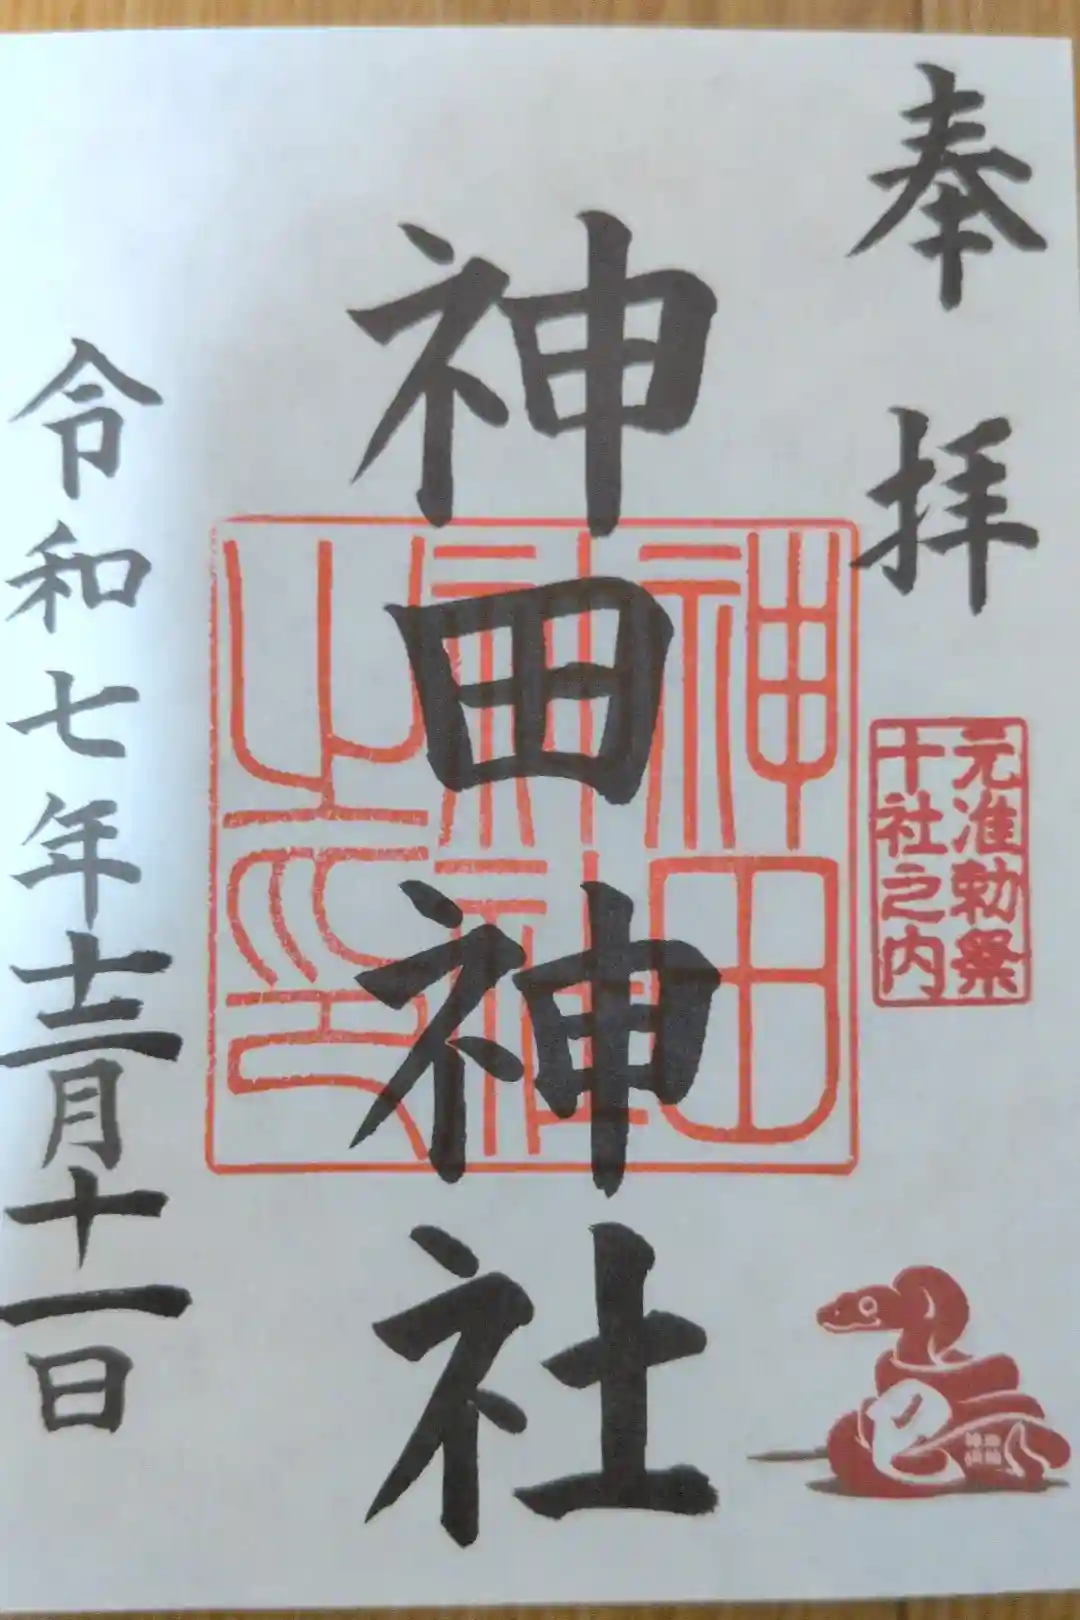 奉拝
元准勅祭
十社之内
神田神社
神田神社之印
令和七年十二月十一日
巳